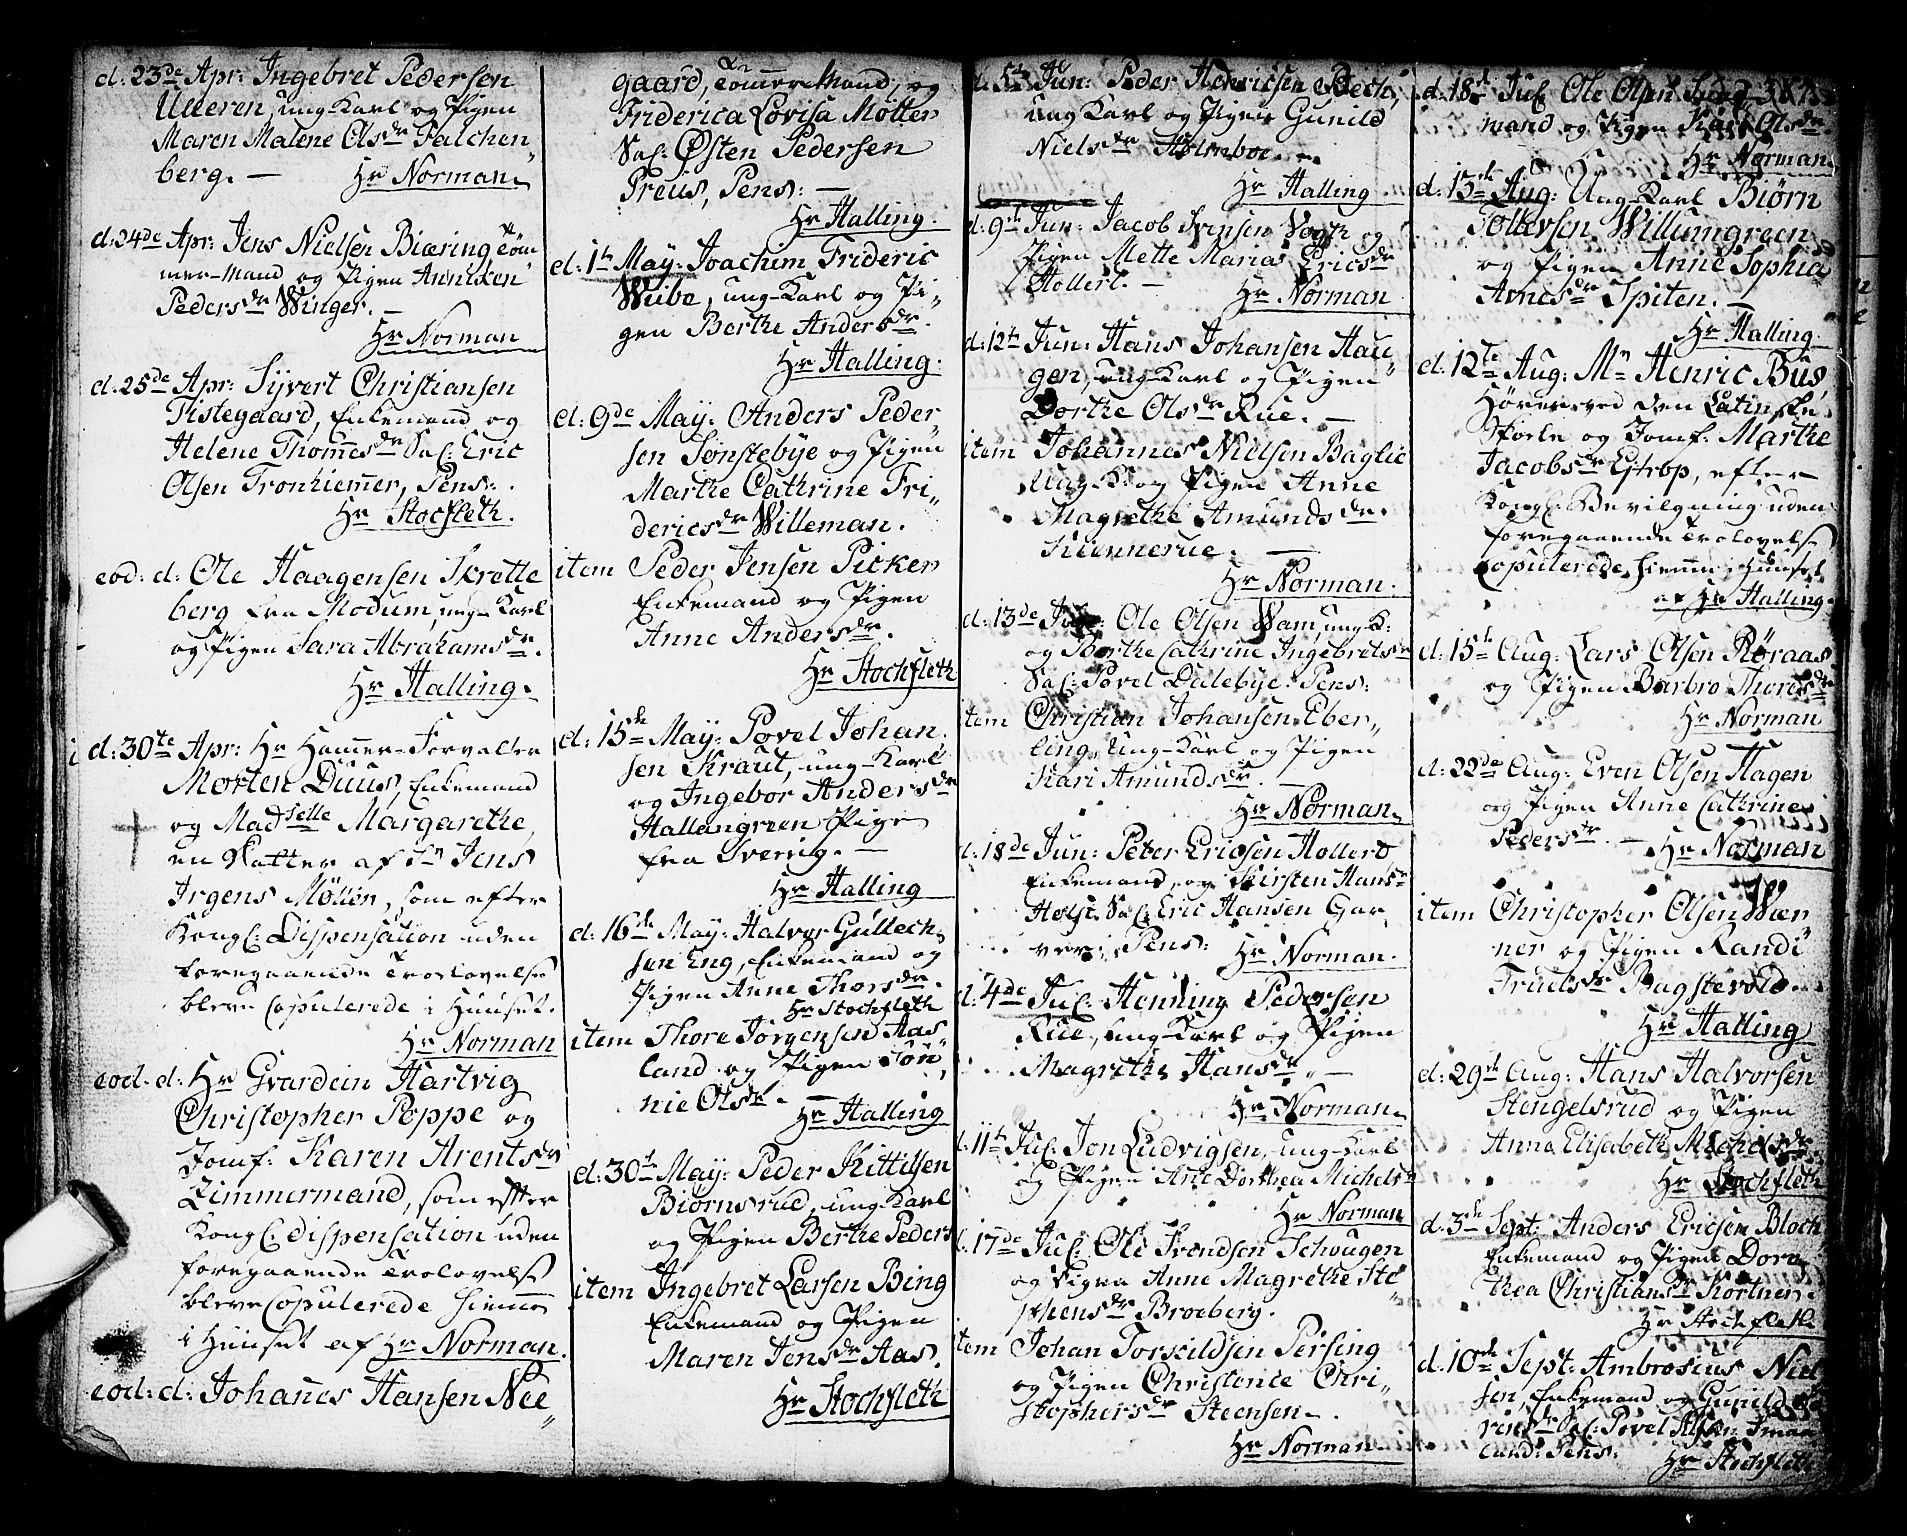 d: 23de Apr: Ingebret Pedersen
Uleren, ung-Karl og Pigen
Maren Malene Olsdr Falchen„
berg. — Hr Norman
d: 24de Apr: Jens Nielsen Biæring Töm
mer-Mand og Pigen Anniken
Pedersdr Winger. —
Hr Norman
d: 25de Apr: Syvert Christiansen
Tistegaard, Enkemand og
Helene Thommesdr Sal: Eric
Olsen Tronhiemmer, Pens:
Hr Stochfleth.
eod: d: Ole Haagensen Skrette
berg fra Modum, ung-Karl
og Pigen Sara Abrahamsdr.
Hr Halling.
d: 30te Apr: Hr Hammer-Forvalter
Morten Duus, Enkemand
og Madselle Margarethe,
en Datter af Sr Jens
Irgens Möller, som efter
Kongl: Dispensation uden
foregaaende Trolovelse
bleve Copulerede i Huuset.
Hr Norman
eod: d: Hr Gvardein Hartvig
Christopher Poppe og
Jomf: Karen Arentsdr
Zimmermand, som efter
Kongl: dispensation uden
foregaaende Trolovelse
bleve Copulerede hiemme
i Huuset af Hr Norman.
eod: d: Johannes Hansen Nee„
gaard, Tömmermand, og
Friderica Lovisa Möller
Sal: Østen Pedersen
Preus, Pens: —
Hr Halling.
d: 1te May: Joachim Frideric
Weibe, ung-Karl og Pi„
gen Berthe Andersdr.
Hr Halling.
d: 9de May: Anders Peder„
sen Sönstebye og Pigen
Marthe Cathrine Fri„
dericsdr Willeman.
item Peder Jensen Picker
Enkemand og Pigen
Anne Andersdr.
Hr Stochfleth
d: 15de May: Povel Johan„
sen Kraut, ung-Karl
og Ingebor Andersdr
Hallangreen Pige
fra Sverrig. —
Hr Halling
d: 16de May: Halvor Gullech„
sen Eng, Enkemand og
Pigen Anne Thorsdr.
Hr Stochfleth
item Thore Jörgensen Aas
land og Pigen Tön„
nie Olsdr. —
Hr Halling
d: 30te May: Peder Kittilsen
Biörnsrud, ung-Karl
og Pigen Berthe Peders
item Ingebret Larsen Bing
Enkemand og Pigen
Maren Jensdr Aas.
Hr Stochfleth
d: 5te Jun: Peder Henricsen Beck,
ung Karl og Pigen Gunild
Nielsdr Holmboe. —
Hr Halling
d: 9de Jun: Jacob Svensen Vogth og
Pigen Mette Maria Ericsdr
Hollert. — Hr Norman
d: 12te Jun: Hans Johansen Hau„
gen, ung-Karl og Pigen
Dorthe Olsdr Rue. —
item Johannes Nielsen Baglie
Ung K: og Pigen Anne
Magrethe Amundsdr.
Kiennerue. —
Hr Norman.
d: 13de Jun: Ole Olsen Wam, ung K:
og Berthe Cathrine Ingebretsdr
Sal: Povel Dalebye. Pens:
item Christian Johansen Eber„
ling, Ung-Karl og Pigen
Kari Amundsdr. —
Hr Norman
d: 18de Jun: Peter Ericsen Hollert,
Enkemand, og Kirsten Hansdr
Holst Sal: Eric Hansen Gar„
ver, Pens: Hr Norman.
d: 4de Jul: Henning Pedersen
Rue, ung-Karl og Pigen
Magrethe Hansdr. —
Hr Norman
d: 11te Jul: Jon Ludvigsen, ung-Karl
og Pigen Ane Dorthea Michelsdr
Hr Norman
d: 17de Jul: Ole Svendsen Schougen
og Pigen Anne Magrethe Ste„
phensdr Broeberg.
item Johan Torkildsen Persing
og Pigen Christence Chri„
stophersdr Steensen.
Hr Norman
d: 18de Jul: Ole Olsen
mand og Pigen Kari Olsdr.
Hr Norman
d: 15de Aug: Ung-Karl Biørn
Tollefsen Willumgreen
og Pigen Anne Sophia
Arnesdr Spiten. —
Hr Halling
d: 12te Aug: Mr Henric Bus
Hörer ved den Latinske
Skole og Jomf: Marthe
Jacobsdr Estrop, efter
Kongl: Bevilgning uden
foregaaende Trolovelse
Copulerede hiemme i Huuset
af Hr Halling.
d: 15de Aug: Lars Olsen Röraas
og Pigen Barbro Thoresdr
Hr Norman
d: 22de Aug: Even Olsen Hagen
og Pigen Anne Cathrine
Pedersdr. — Hr Norman
item Christopher Olsen Wær
ner og Pigen Randi
Truelsdr Bagstevold.
Hr Halling
d: 29de Aug: Hans Halvorsen
Stengelsrud og Pigen
Anna Elisabeth Michelsdr
Hr Stochfleth
d: 3de Sept: Anders Ericsen Bloch
Enkemand og Pigen Doro
thea Christiansdr Kortner.
Hr Stochfleth.
d: 10de Sept: Ambrosius Niel
sen, Enkemand og Gunild
Sal: Povel
land: Pens: Hr Stochfleth